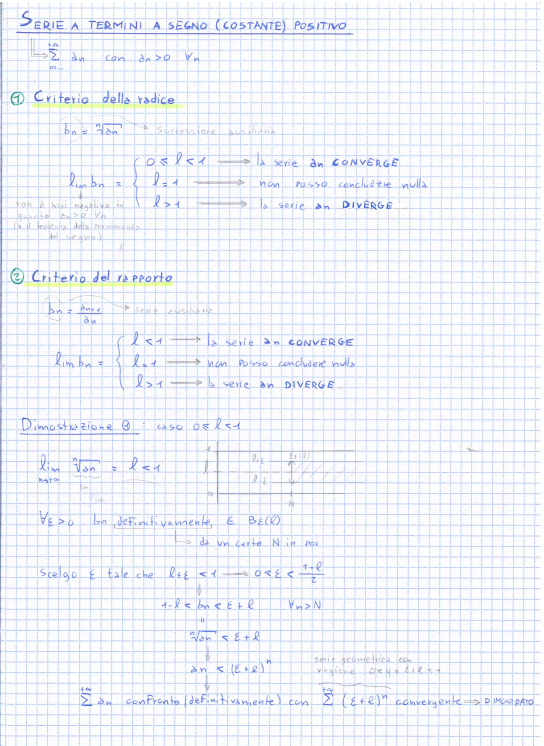 SERIE A TERMINI A SEGNO (COSTANTE) POSITIVO
+∞ Σ n=... an con an>0 ∀n
① Criterio della radice
bn = ⁿ√an → Successione ausiliaria
0 ≤ l < 1 → la serie an CONVERGE
lim bn = { l = 1 → non posso concludere nulla
l > 1 → la serie an DIVERGE
non è mai negativo in
quanto an>0 ∀n
(x il teorema della permanenza
del segno)
② Criterio del rapporto
bn = an+1 / an → serie ausiliaria
l < 1 → la serie an CONVERGE
lim bn = { l = 1 → non posso concludere nulla
l > 1 → la serie an DIVERGE
Dimostrazione ① : caso 0 ≤ l < 1
lim n→+∞ ⁿ√an = l < 1
bn
1
l+ε Bε(l)
l
l-ε
0
N
∀ε>0 bn definitivamente, ∈ Bε(l)
da un certo N in poi
scelgo ε tale che l+ε < 1 → 0 < ε < 1-l / 2
1-l < bn < ε+l ∀n>N
ⁿ√an < ε+l
an < (ε+l)ⁿ
serie geometrica con
ragione 0<q=l+ε<1
+∞ Σ an confronto (definitivamente) con +∞ Σ (ε+l)ⁿ convergente ⇒ DIMOSTRATO